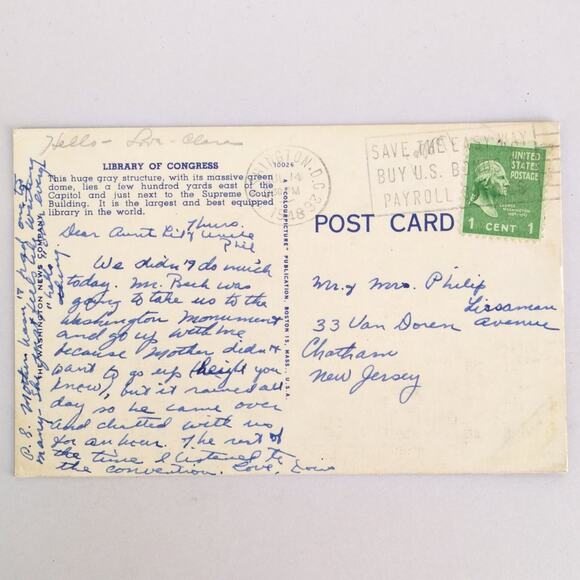 Hello - Love - Clara
LIBRARY OF CONGRESS
This huge gray structure, with its massive green
dome, lies a few hundred yards east of the
Capitol and just next to the Supreme Court
Building. It is the largest and best equipped
library in the world.
Thurs.
Dear Aunt Lil & Uncle
Phil
We didn't do much
today. Mr. Bach was
going to take us to the
Washington Monument
and go up with me
because Mother didn't
want to go up (height you
know), but it rained all
day so he came over
and chatted with us
for an hour. The rest of
the time I listened to
the convention. Love, Lois
P.S. Mother wasn't
THE WASHINGTON NEWS COMPANY
10026
A "COLORPICTURE" PUBLICATION, BOSTON 15, MASS., U.S.A.
D.C.
14
1948
SAVE THE EASY WAY
BUY U.S. BONDS
PAYROLL
UNITED
STATES
POSTAGE
GEORGE
WASHINGTON
1 CENT 1
POST CARD
Mr. & Mrs. Philip
33 Van Doren Avenue
Chatham
New Jersey